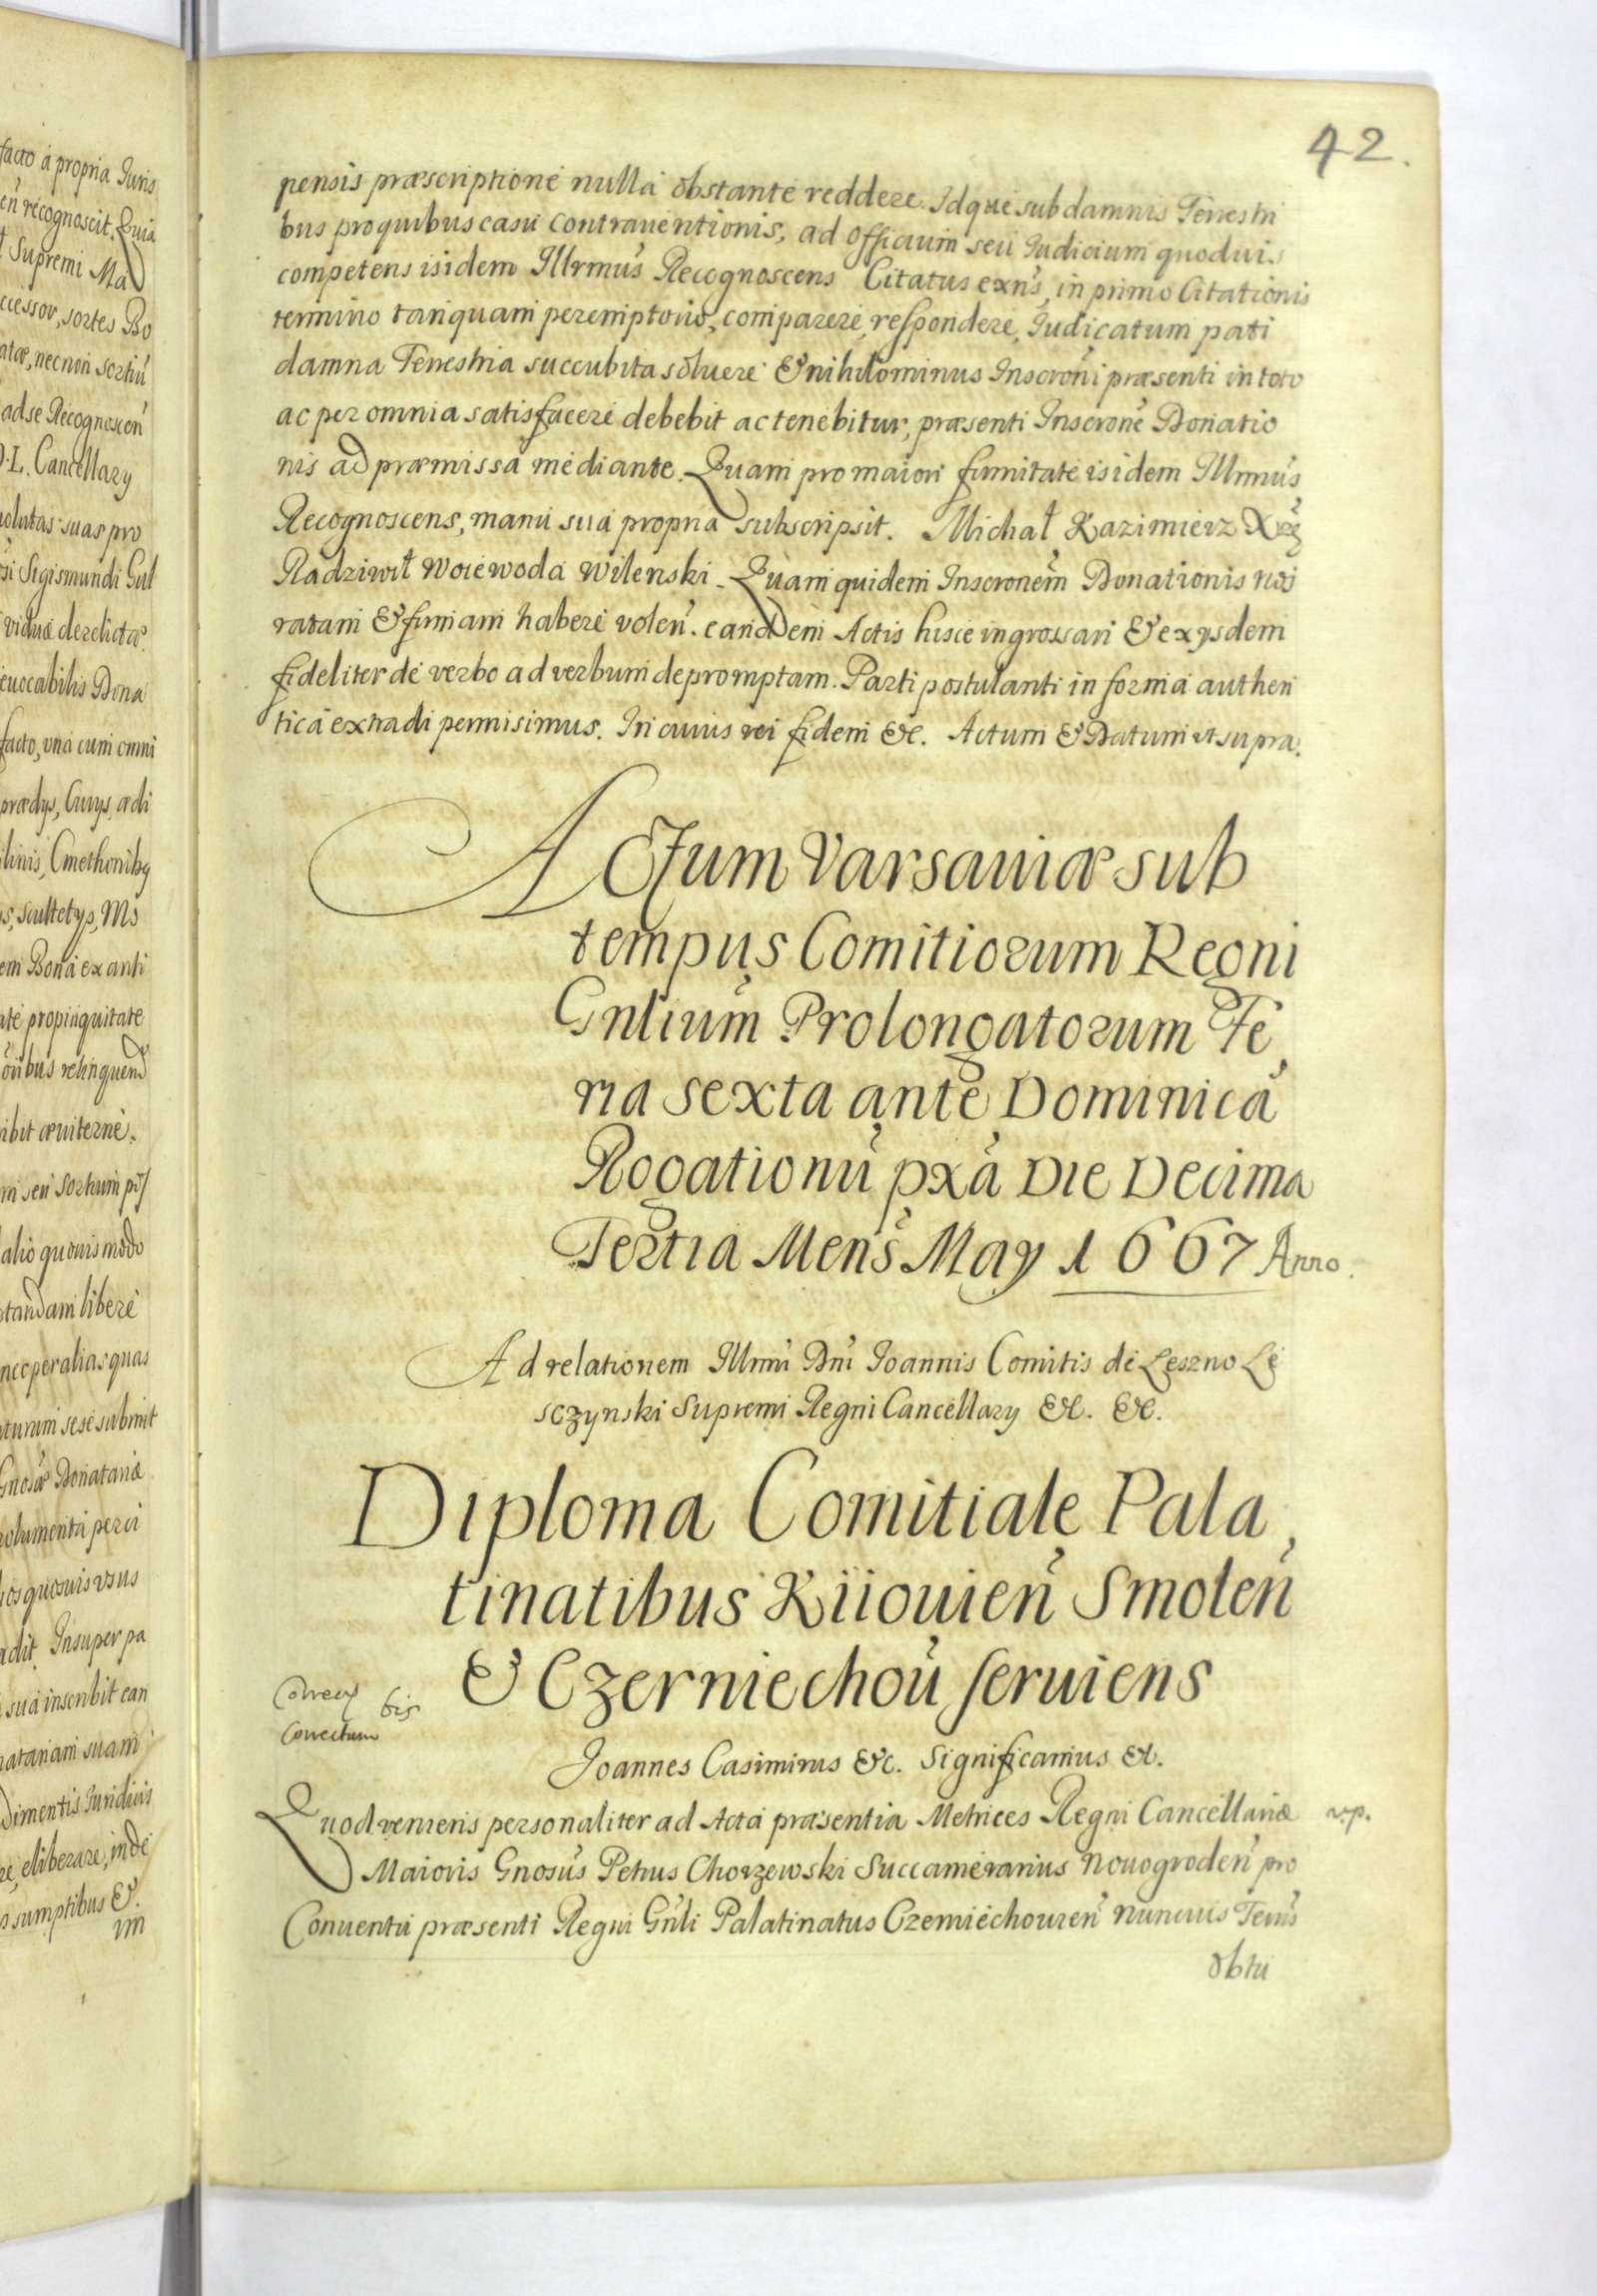 facto á propria Juris
en̄ récognoscit. Quia
Supremi Ma
ccessor, sortes Bo
atæ, nec non sortiū
ad se Recognoscen̄
D.L. Cancellary
solutas suas pro
Sigismundi Gul
viduæ derelictæ
reuocabilis Dona
facto, vna cum omni
prædys, Curys, ædi
Cmethoniby
scultetys, Mo
em Bona ex anti
propinquitate
oribus relinquend
ibit æuiterne.
m seu Sortium
alio quouis modo
standam liberé
nec per alias quas
turum sese submit
Gnosæ Donatariæ
molumenta perci
ios quosuis vsus
adit. Insuper pa
suá inscribit ean
natariam suam
dimentis Juridicis
re, eliberare, indé
sumptibus &.
im
42.
pensis præscriptioné nullá obstanté reddere. Idqué sub damnis Terrestri
bus pro quibus casu contrauentionis, ad officium seu Judicium quoduis
competens isidem Illrmūs Recognoscens Citatus exn̄s, in primo Citationis
termino tanquam peremptorio, comparere, respondere, Judicatum pati
damna Terrestria succubita soluere & nihilominus Inscron̄i præsenti in toto
ac per omnia satisfaceré debebit ac tenebitur, præsenti Inscroné Donatio
nis ad præmissa mediante. Quam pro maiori firmitaté isidem Illrmūs
Recognoscens, manu suá propria subscripsit. Michał Kazimierz Xżę
Radziwił Woiéwoda Wilenski. Quam quidem Inscronēm Donationis nos
ratam & firmam haberé volen̄. eandem Actis hisce ingrossari & ex ysdem
fideliter dé verbo ad verbum depromptam. Parti postulanti in formá authen
ticá extradi permisimus. In cuius rei fidem &c. Actum & Datum ut supra.
ACTum Varsauiæ sub
tempus Comitiorum Regni
Gn̄lium Prolongatorum Fe,
ria sexta ante Dominicā
Rogationū pxā Die Decima
Tertia Men̄s May 1667 Anno.
Ad relationem Illrmi Dn̄i Joannis Comitis dé Leszno Le
sczynski Supremi Regni Cancellary &c. &c.
Diploma Comitiale Pala,
tinatibus Kiiouien̄ Smolen̄
& Czerniechou seruiens
bis
Correctum
Joannes Casimirus &c. Significamus &c.
Quod veniens personaliter ad Acta præsentia Metrices Regni Cancellariæ
Maioris Gnosūs Petrus Chorzewski Succamerarius Nouogroden̄ pro
Conuentu præsenti Regni Gn̄li Palatinatus Czerniéchouien̄ Nuncius Terr̄is
obtu